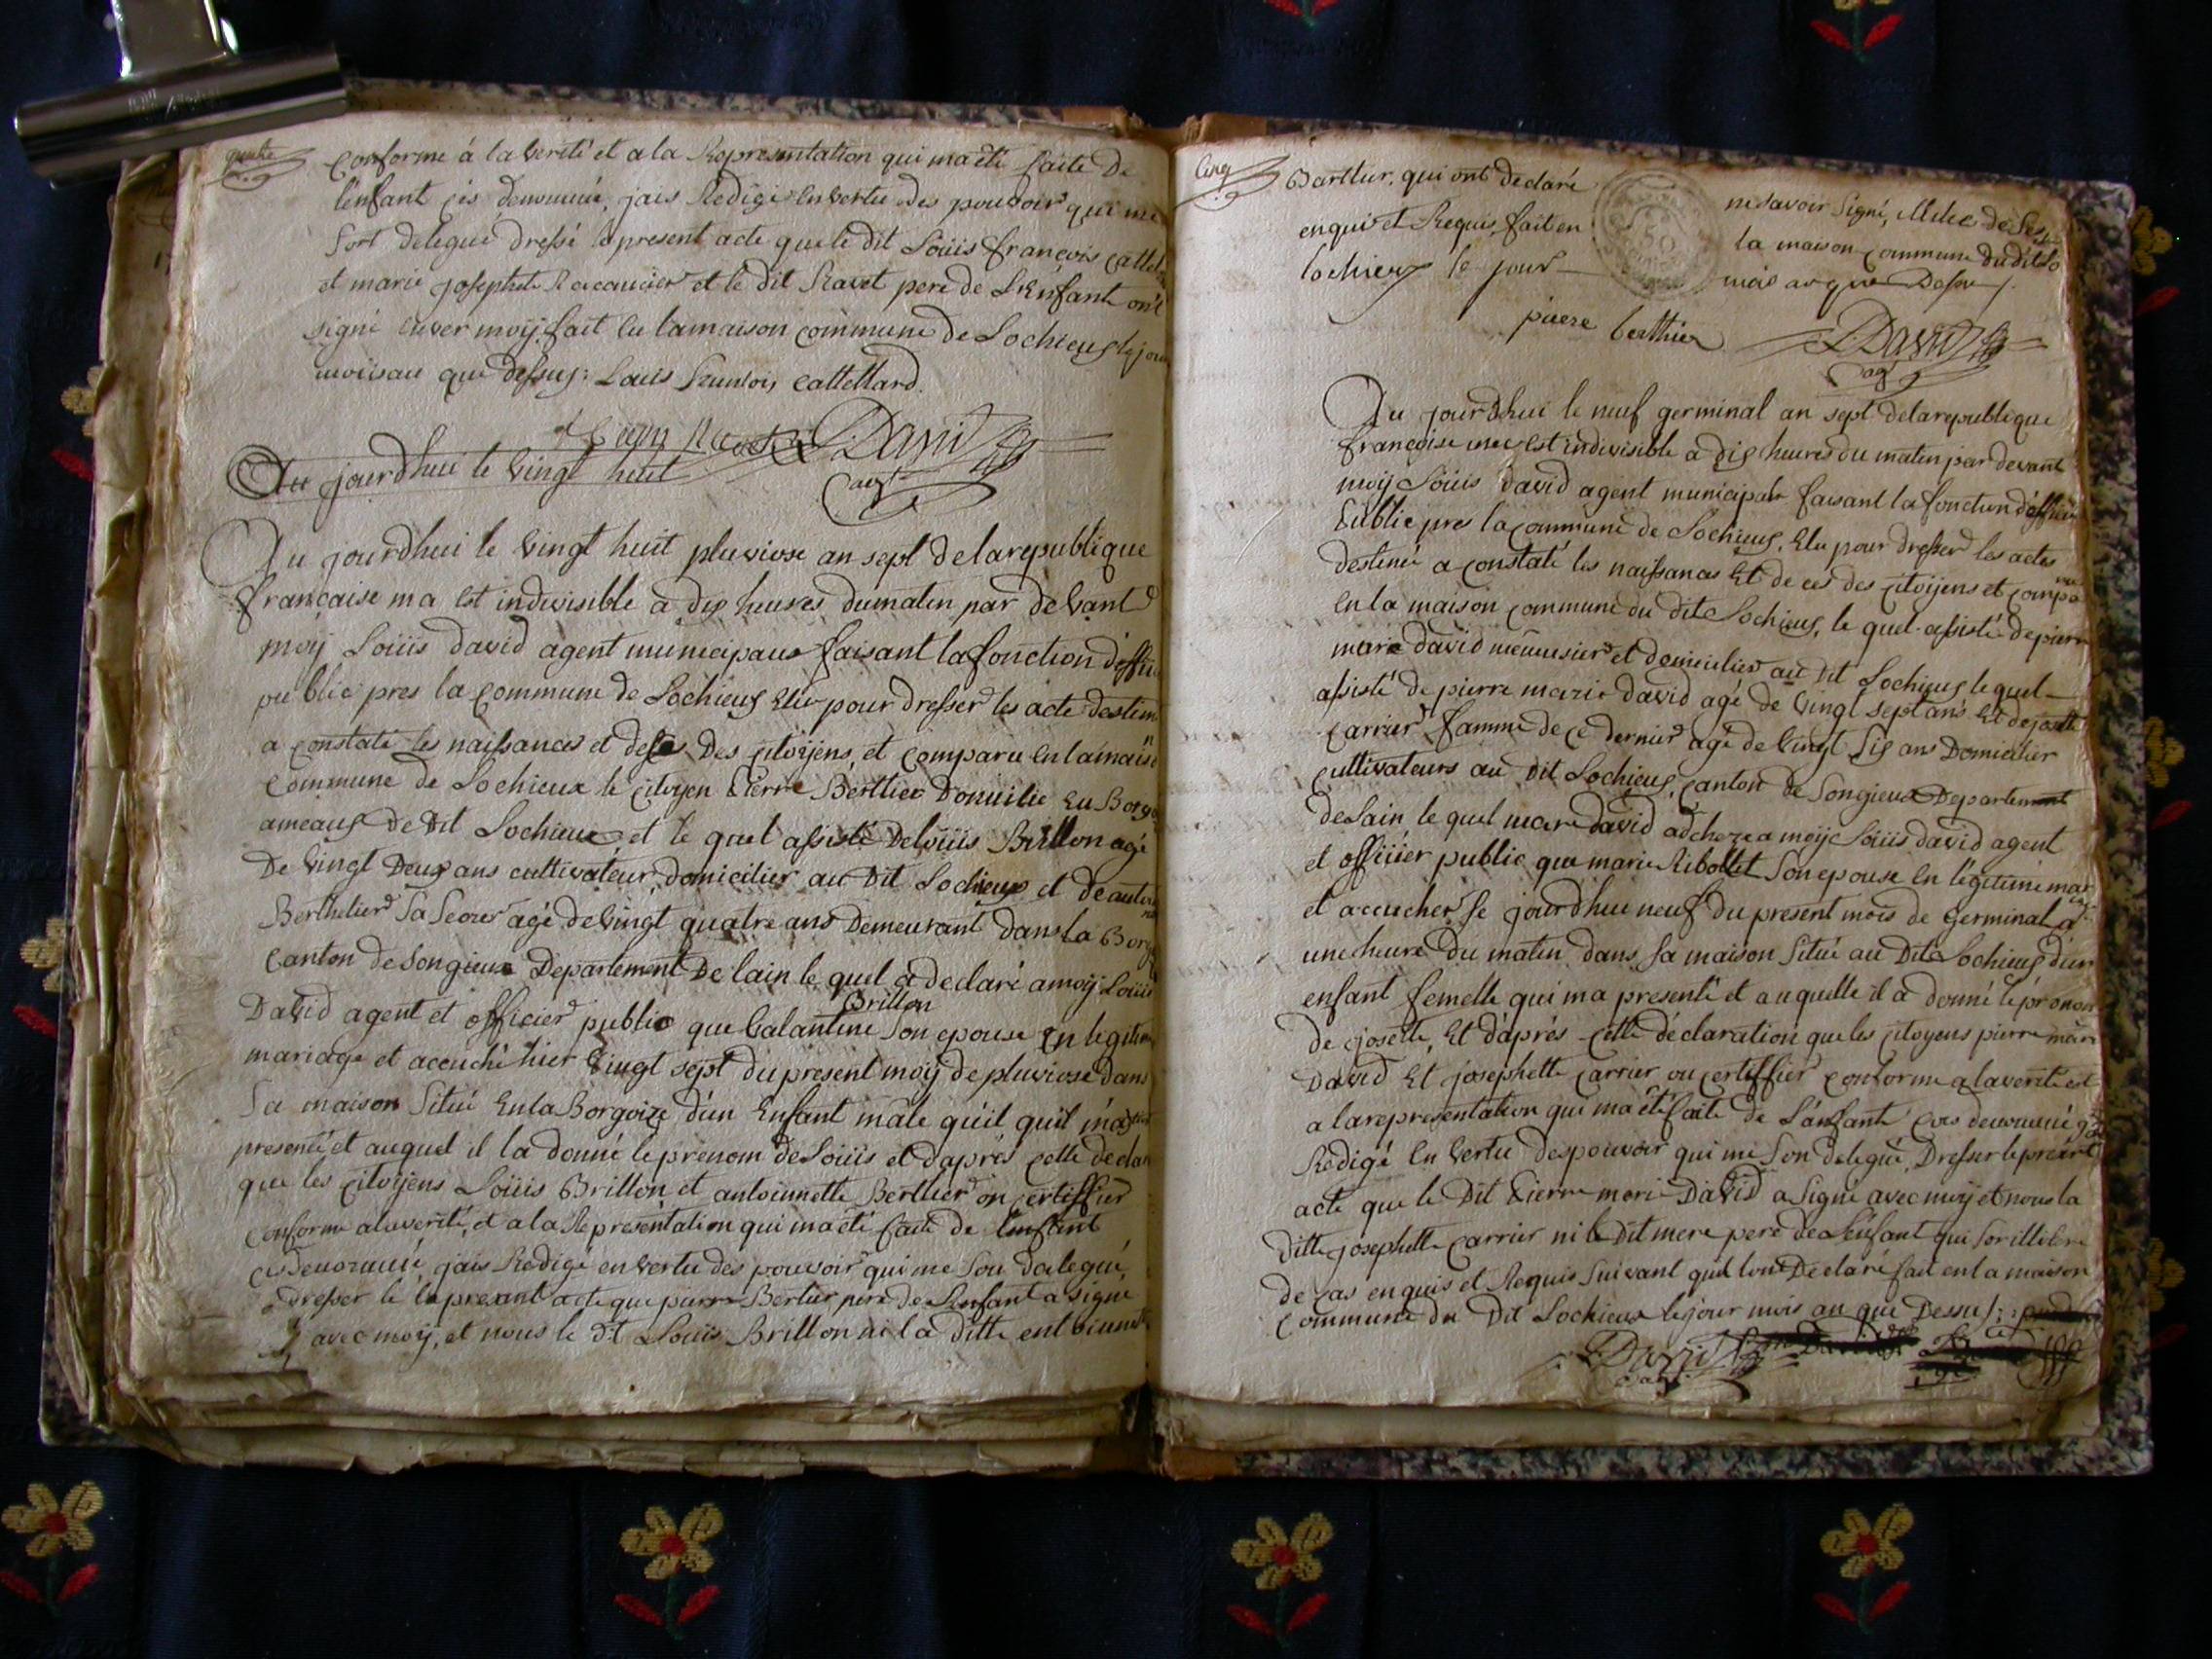 quatre
conforme á la verité et a la Representation qui ma eté faite De
l'enfant cis denommé, jais Redigé En vertu des pouvoir qui me
sort delegué dressé le present acte que le dit Loüis françois cattel
et marie josephete et le dit Ravet pere de L'Enfant ont
signé avec moÿ, fait En la maison commune de Lochieux le jour
mois au que dessus: Louis françois cattelland
David
agt
Au jourd'hui le vingt huit
Au jourdhui le vingt huit pluviose an sept de la republique
francaise une est indivisible a dix heures du matin par devant
moÿ Loüis david agent municipaux faisant la fonction d'offici
publice pres la commune de Lochieux Elu pour dresser les acte destin
a constaté les naissances et deses Des citoÿens, et comparu En la maison
commune de Lochieux le citoyen Pierre Berthier Domicilie En Borgo
ameaux de dit Lochieux et le quel assisté De Loüis Brillon agé
De vingt Deux ans cultivateur, domicilier au Dit Lochieux et de antoi
Berthelier sa seour agé de vingt quatre ans Demeurant dans la Borg
canton de Songieux Departement De lain le quel a declaré a moÿ Loüis
David agent et officier public que valantine Brillon son epouse En legitim
mariage et accuché hier vingt sept du present moÿ de pluviose dans
sa maison Situé En la Borgoize d'un Enfant mâle qu'il quil m'a
presenté et auquel il la donné le prenom de Loüis et d'aprés cette decla
que les citoÿens Loüis Brillon et antoinnette Berthier on certiffier
conforme a la verité, et a la Representation qui ma eté faite de lenfant
cis denommé, jais Redigé en vertu des pouvoir qui me son delegué,
dresser le le present acte que pierre Bertier pere de Lenfant a signé
avec moÿ, et nous le dit Loüis Brillon ni la ditte ent
Cinq
Barttier, qui ont declaré ne savoir signé,
enquis et Requis, fait en la maison commune du dit Lo
lochieux le jour mois an que Dessu
50
piere berthier David
agt
Au jourdhui le neuf germinal an sept de la republique
francaise une est indivisible a dix heures du matin par devant
moÿ Loüis David agent municipal faisant la fonction d'officie
Public pres la commune de Lochieux, Elu pour dresser les actes
destiné a constaté les naissances Et de ces des citoÿens et compa
En la maison commune du dit Lochieux, le quel assisté de pierre
marie david menusier et domicilier au dit Lochieux le quel
assisté de pierre marie david agé de vingt sept ans Et de josette
carrier famme de ce dernier agé de vingt six ans Domicilier
cultivateurs au dit Lochieux, canton de Songieux Departement
de Lain le quel mare david a moÿ Loüis david agent
et officier public que marie Ribollet son epouse En legitime mar
et accucher se jourdhui neuf du present mois de germinal a
une heure du matin dans sa maison Situé au Dit Lochieux d'un
enfant femelle qui ma presenté et a quelle il a donné le pronom
de josette, Et d'aprés cette déclaration que les citoyens pierre mari
David Et josephette carrier ou certiffier conforme a la verité et
a la representation qui ma été faite de L'anfant cies denommé
Redigé En vertu des pouvoir qui me son delegué, Dresser le present
acte que le Dit Pierre mari David a signé avec moÿ et nous la
ditte josephette carrier ni le Dit mere pere de L'enfant qui
de cas enquis et Requis suivant quil lon Declaré fait en la maison
commune du Dit Lochieux le jour mois an que Dessus:
David
agt